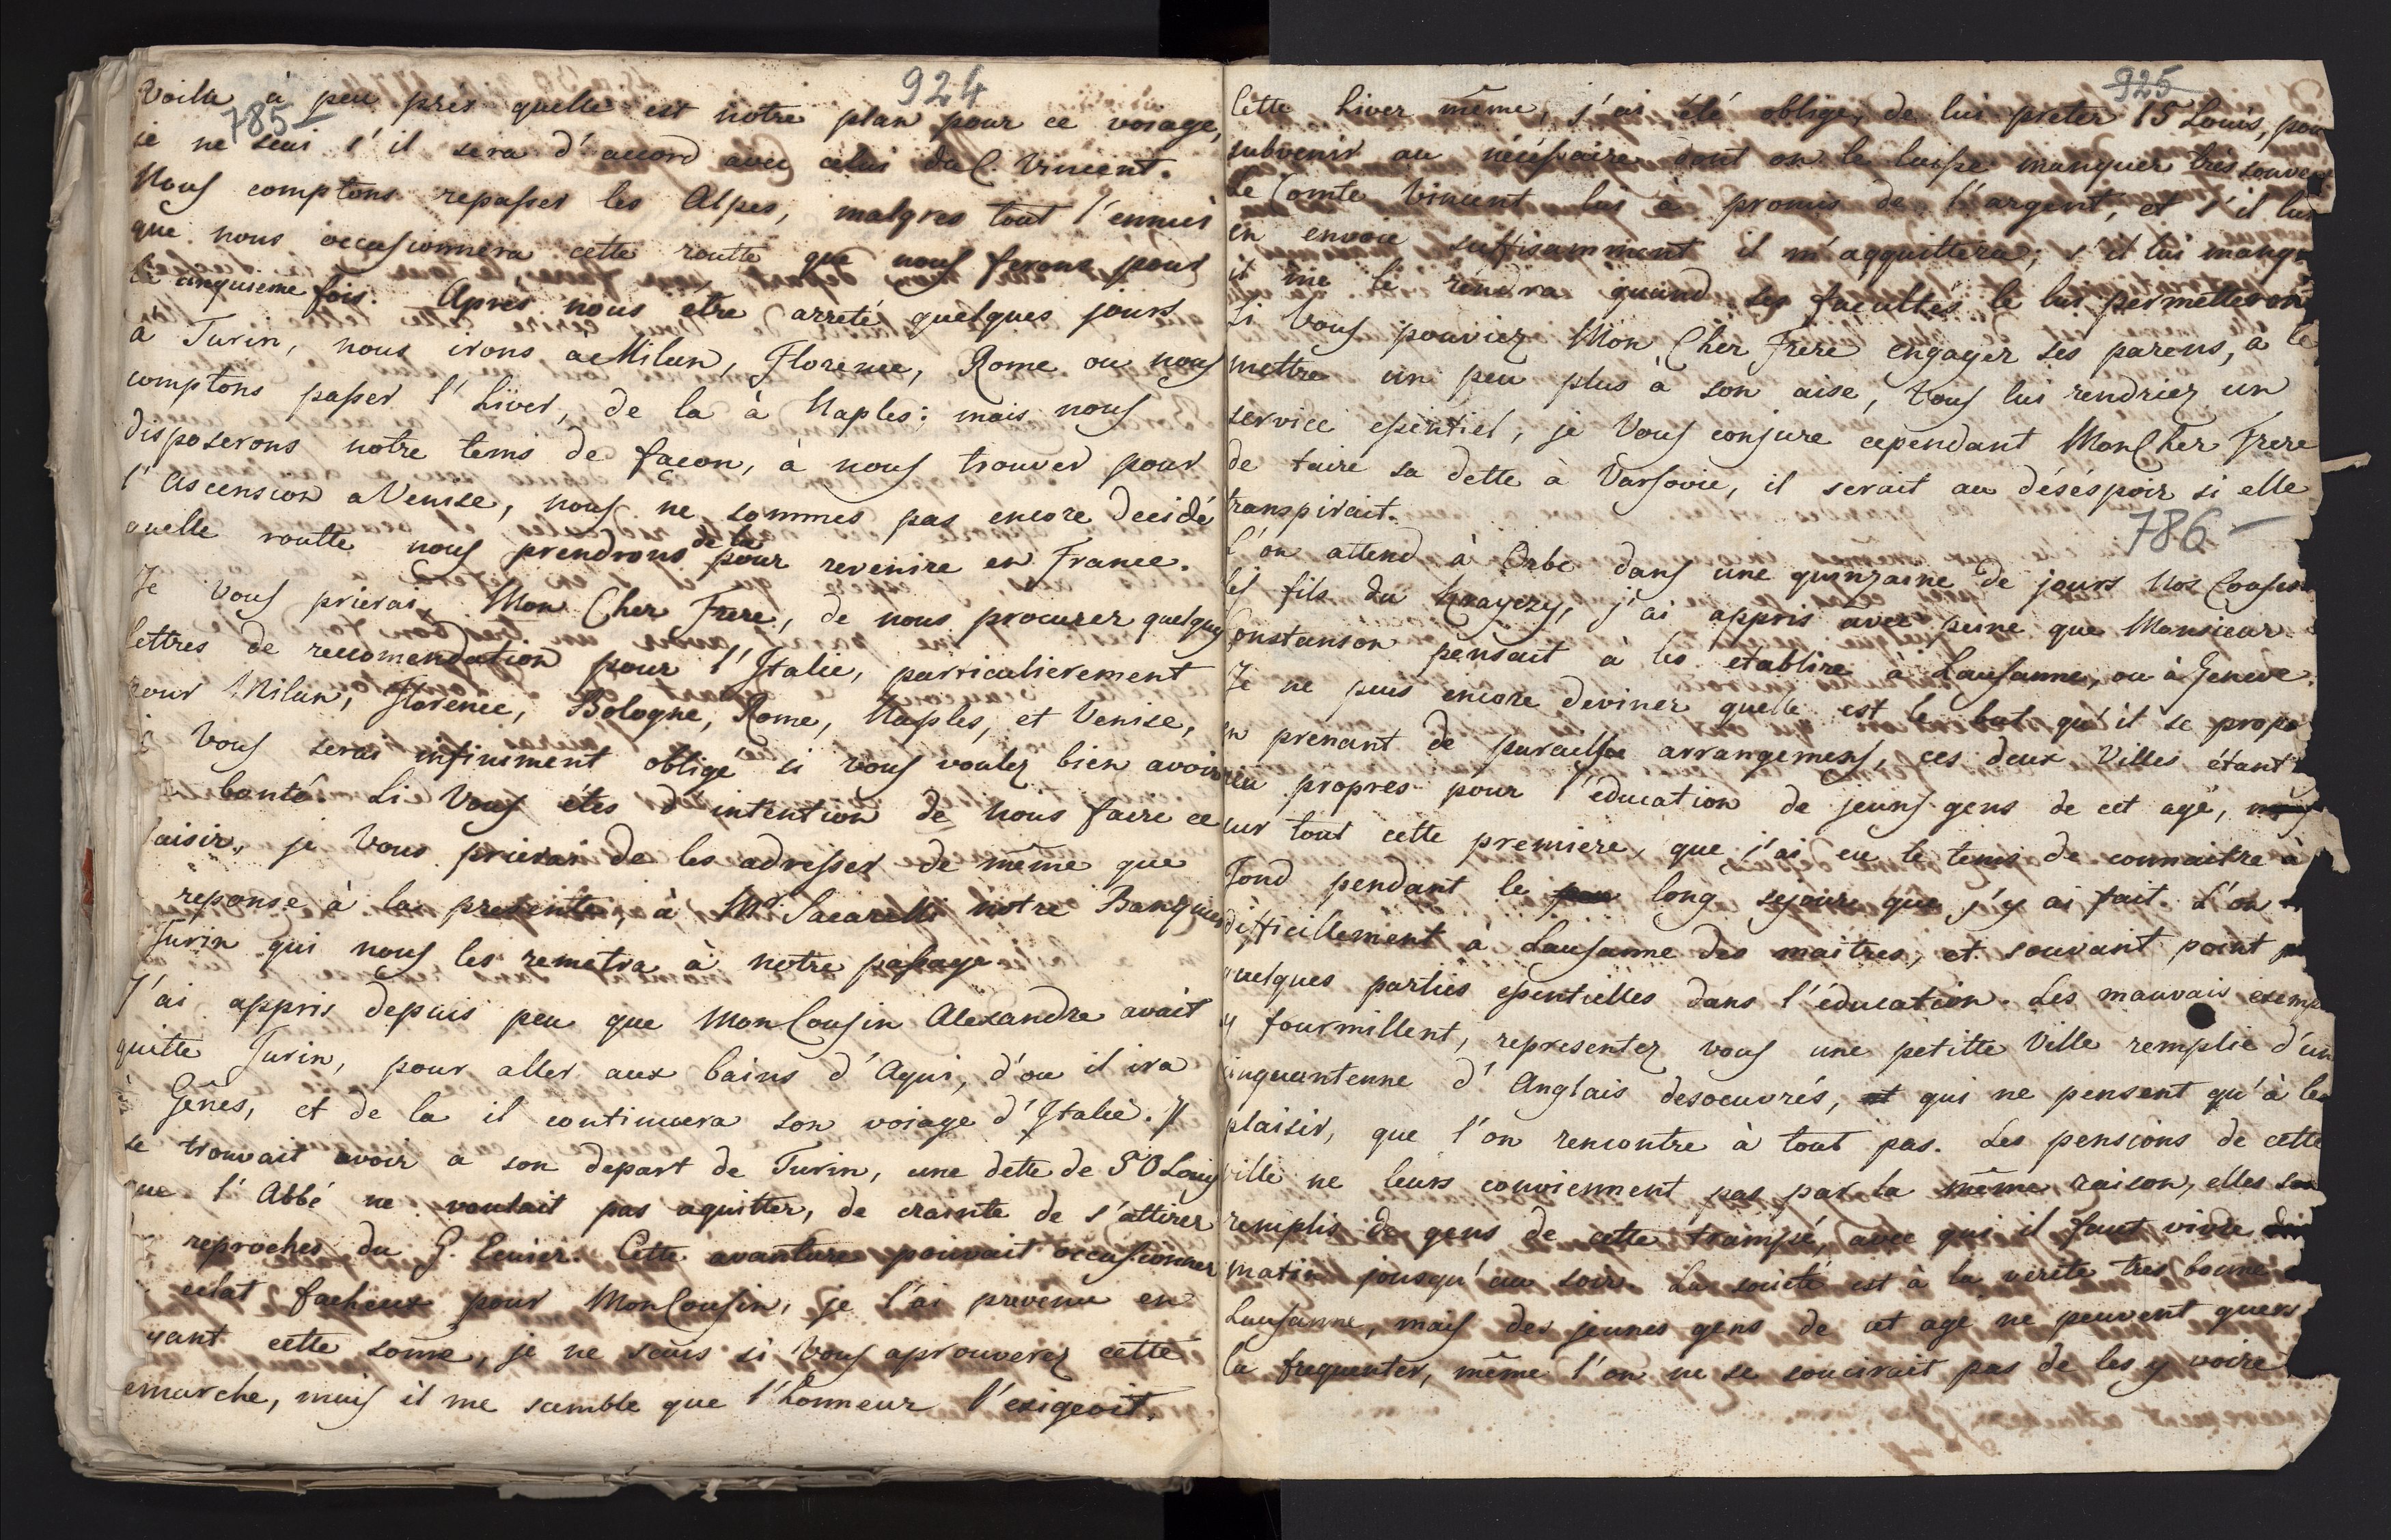 924
Voila à peu près quelle est notre plan pour ce voiage,
785
je ne scai s'il sera d'accord avec celui du C. Vincent.
Nous comptons repasser les Alpes, malgres tout l'ennui
que nous occasionnera cette routte que nous ferons pour
la cinquieme fois. Apres nous etre arreté quelques jours
à Turin, nous irons à Milan, Florence, Rome ou nous
comptons passer l'hiver, de la à Naples; mais nous
disposerons notre tems de façon, à nous trouver pour
l'Ascension a Venise, nous ne sommes pas encore decidé
quelle routte nous prendrons de la pour revenire en France.
Je Vous prierai, Mon Cher Frere, de nous procurer quelques
lettres de reccomendation pour l'Italie, particulierement
pour Milan, Florence, Bologne, Rome, Naples, et Venise,
Vous serai infiniment obligé si vous voulez bien avoir
bonté. Si Vous étes d'intention de nous faire ce
laisir, je Vous prierai de les adresser de même que
reponse à la presente, à Mr Sacarelli notre Banquier
Turin qui nous les remetra à notre passage
J'ai appris depuis peu que Mon Cousin Alexandre avait
quitte Turin, pour aller aux bains d'Aqui, d'ou il ira
à Gênes, et de la il continuera son voiage d'Italie. Il
se trouvait avoir a son depart de Turin, une dette de 50 Louis
que l'Abbé ne voulait pas aquitter, de crainte de s'attirer
reproches du G. Ecuier. Cette avanture pouvait occasionner
eclat facheux pour Mon Cousin, je l'ai prevenu en
yant cette somme, je ne scais si Vous aprouverez cette
emarche, mais il me samble que l'honneur l'exigeoit.
925
Cette hiver même, j'ai été oblige, de lui preter 15 Louis, pour
subvenir au nécessaire dont on le laisse manquer très souve
Le Comte Vincent lui à promis de l'argent, et s'il lui
en envoie suffisamment il m'aqquittera; s'il lui manque
il me le rendra quand ses facultés le lui permetteront
Si Vous pouviez Mon Cher Frere engager ses parens, à le
mettre un peu plus à son aise, Vous lui rendriez un
service essentiel, je Vous conjure cependant Mon Cher Frere
de taire sa dette à Varsovie, il serait au désespoir si elle
transpirait.
786
L'on attend à Orbe dans une quinzaine de jours Nos Cousins
les fils du Krayczy, j'ai appris avec peine que Monsieur
Constanson pensait à les etablire à Lausanne, ou à Geneve.
Je ne puis encore deviner quelle est le but qu'il se propo
en prenant de paraille arrangemens, ces deux Villes étant
peu propres pour l'education de jeuns gens de cet age,
sur tout cette premiere, que j'ai eu le tems de connaitre à
Fond pendant le long sejoure que j'y ai fait. L'on
difficillement à Lausanne des maitres, et souvant point
quelques parties essentielles dans l'éducation. Les mauvais exemp
y fourmillent, representez vous une petitte Ville remplie d'un
cinquantenne d'Anglais desoeuvrés, qui ne pensent qu'à leur
plaisir, que l'on rencontre à tout pas. Les pensions de cette
ville ne leurs conviennent pas par la même raison, elles son
remplis de gens de cette trampe, avec qui il faut vivre
matin jousqu'au soir. La societé est à la verite tres bonne
Lausanne, mais des jeunes gens de cet age ne peuvent guers
la frequenter, même l'on ne se soucirait pas de les y voire